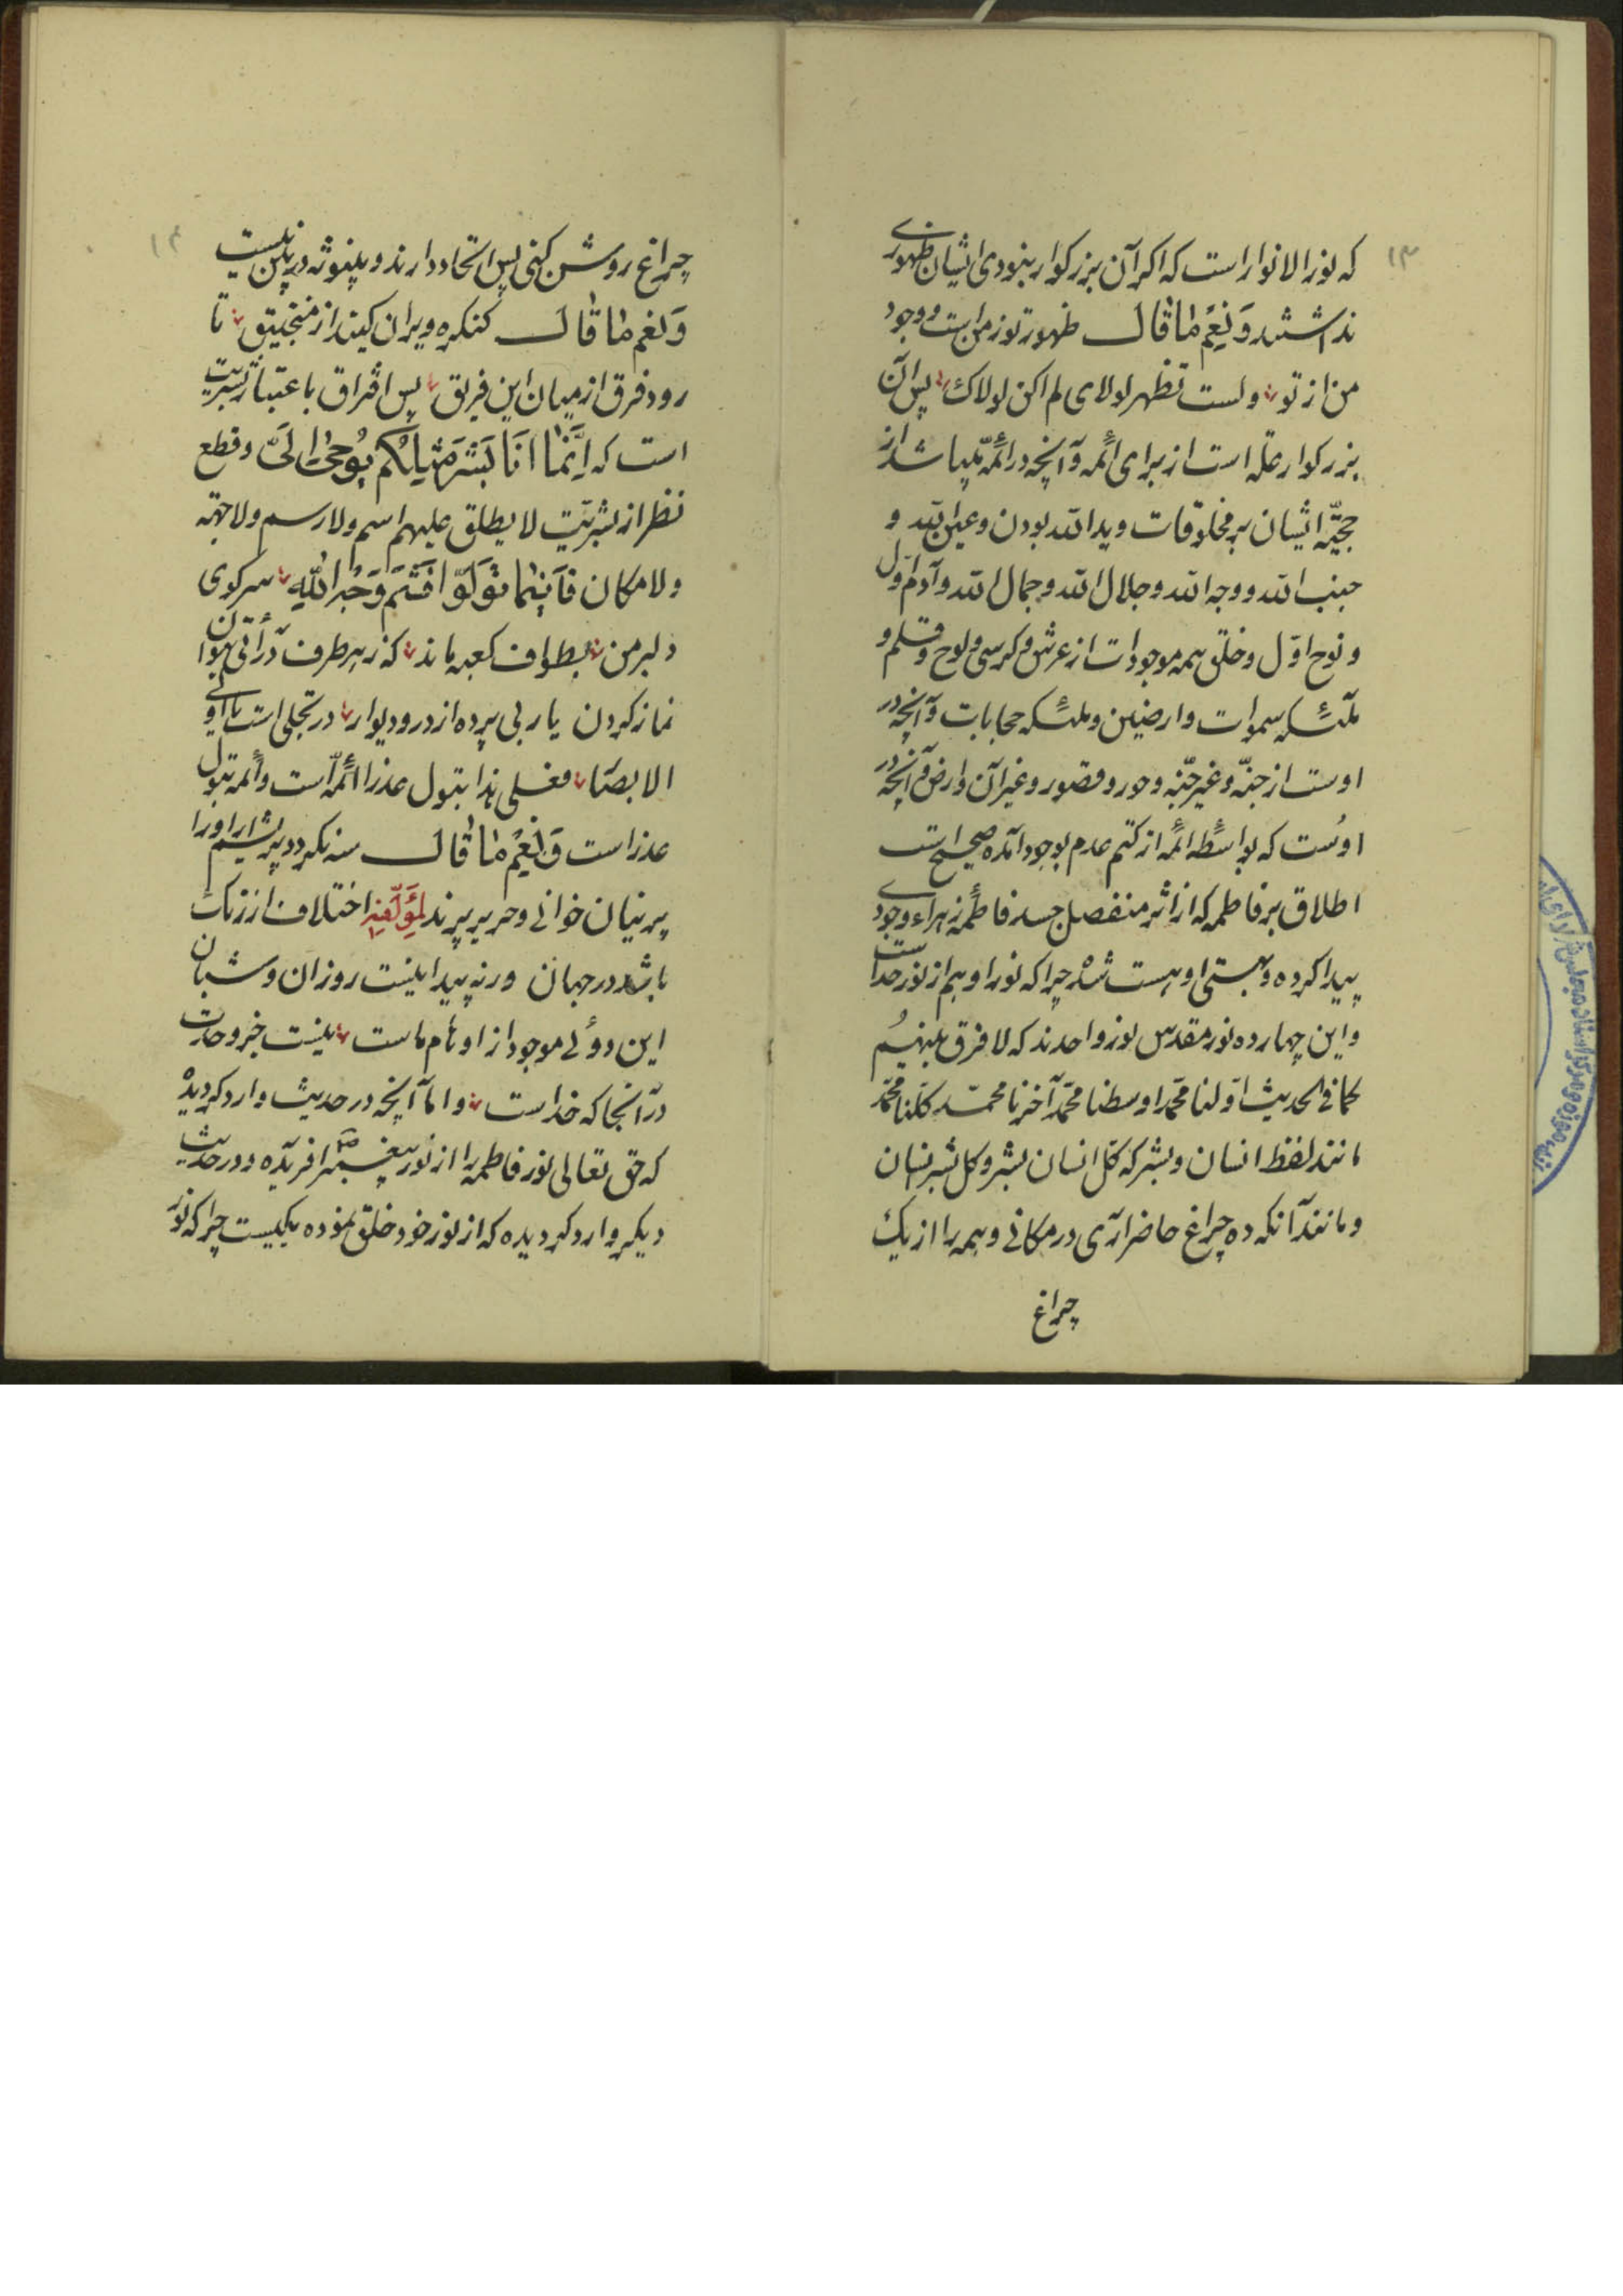 ۱۳
که نورالانوار است که اکر آن بزرکوار نبودی ایشان ظهوری
نداشتند وَ نِعْمَ مٰا قٰالَ ظهور تو ز من است و وجود
من از تو ولست تظهر لولای لم اکن لولاک پس آن
بزرکوار علّه است از برای ائمه و آنچه در ائمّه میباشد از
حجیّه ایشان بر مخلوقات و یدالله بودن و عین الله و
جنب الله و وجه الله و جلال الله و جمال الله و آدم اول
و نوح اوّل و خلق همه موجودات از عرش و کرسی و لوح و قلم و
ملئکه سموات و ارضین و ملئکه حجابات و آنچه در
اوست از جنّه و غیر جنّه و حور و قصور و غیر آن و ارض و آنچه در
اوست که بواسطه ائمه از کتم عدم بوجود آمده صحیح است
اطلاق بر فاطمه که از اثر منفصل جسد فاطمه زهراء وجودی
پیدا کرده و بهستی او هست شد چرا که نور او هم از نور خداست
و این چهارده نور مقدس نور واحدند که لا فرق بینهُم
کما فی الحدیث اوّلنا محمّد اوسطنا محمّد آخرنا محمّد کلّنا محمّد
مانند لفظ انسان و بشر که کل انسان بشر و کل بشر انسان
و مانند آنکه ده چراغ حاضر آری در مکانی و همه را از یک
چراغ
۱۴
چراغ روشن کنی پس اتحاد دارند و بینونه در بین نیست
وَ نِعْمَ مٰا قٰالَ کنکره ویران کنید از منجنیق تا
رود فرق از میان این فریق پس افتراق باعتبار بشریت
است که اِنَّمٰا اَنَا بَشَرٌ مِثْلُکُم یُوحیٰ اِلَیَّ و قطع
نظر از بشریّت لا یطلق علیهم اسم ولا رسم ولا جهة
ولا مکان فَاَیْنَمٰا تُوَلّوا فَثَمَّ وَجْهُ اللّٰهِ سر کوی
دلبر من بطواف کعبه ماند که ز هر طرف درائی بتوان
نماز کردن یار بی پرده از در و دیوار در تجلی است یا اولی
الابصار فعلی هذا بتول عذرا ائمّه است و ائمه بتول
عذرا است وَ نِعْمَ مٰا قٰالَ سه نکردد بریشم ار او را
پرنیان خوانی و حریر و پرند لِمُؤَلِّفِهِ اختلاف از زنک
باشد در جهان ورنه پیدا نیست روزان و شبان
این دوئی موجود از اوهام ماست نیست جز وحدت
در آنجا که خداست و اما آنچه در حدیث وارد کردیده
که حق تعالی نور فاطمه را از نور پیغمبر افریده و در حدیث
دیکر وارد کردیده که از نور خود خلق نموده یکیست چرا که نور